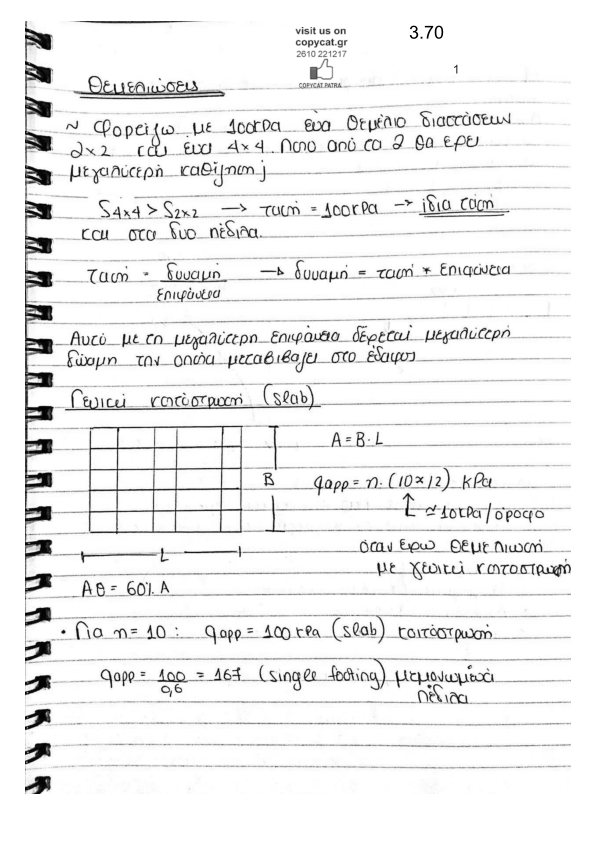 visit us on
copycat.gr
2610 221217
COPYCAT PATRA
3.70
1
Θεμελιώσεις
~ Φορτίζω με 100kPa ένα θεμέλιο διαστάσεων
2×2 και ένα 4×4. Ποιο από τα 2 θα έχει
μεγαλύτερη καθίζηση;
S4×4 > S2×2 → τάση = 100kPa → ίδια τάση
και στα δυο πέδιλα.
τάση = δύναμη / επιφάνεια → δύναμη = τάση * επιφάνεια
Αυτό με τη μεγαλύτερη επιφάνεια δέχεται μεγαλύτερη
δύναμη την οποία μεταβιβάζει στο έδαφος
Γενική κοιτόστρωση (slab)
A = B·L
B
qapp = n·(10×12) kPa
≈10kPa/όροφο
L
όταν έχω θεμελίωση
με γενική κοιτόστρωση
Aθ = 60% A
• Για n=10: qapp = 100kPa (slab) κοιτόστρωση
qapp = 100/0,6 = 167 (single footing) μεμονωμένα
πέδιλα